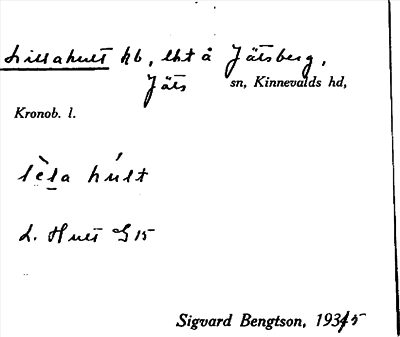 Lillahult hb, lht å Jätsberg,
Jäts sn, Kinnevalds hd,
Kronob. l.
lèla húlt
L. Hult G 15
Sigvard Bengtson, 1934/5